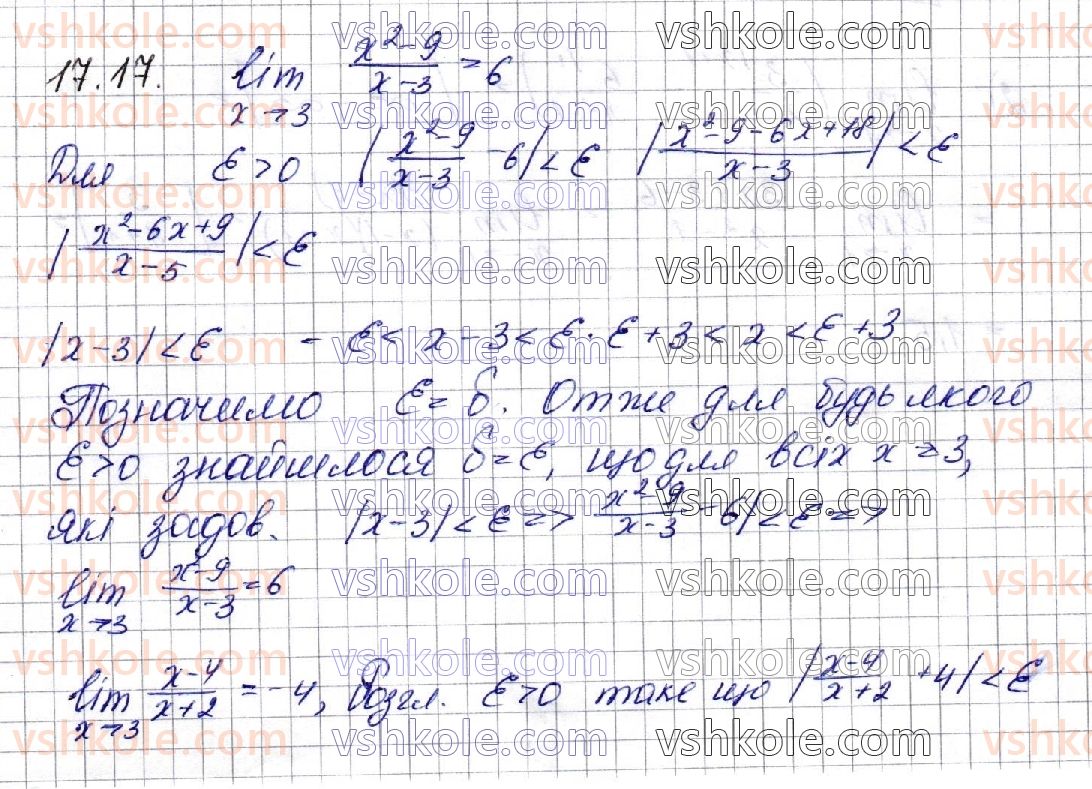 17.17. lim x→3 (x²-9)/(x-3) = 6
Для ε>0 |(x²-9)/(x-3) - 6| < ε |(x²-9-6x+18)/(x-3)| < ε
|(x²-6x+9)/(x-5)| < ε
|x-3| < ε -ε < x-3 < ε. ε+3 < x < ε+3
Позначимо ε=δ. Отже для будь якого
ε>0 знайшлося δ=ε, що для всіх x → 3,
які задов. |x-3| < ε => (x²-9)/(x-3) - 6| < ε =>
lim x→3 (x²-9)/(x-3) = 6
lim x→3 (x-4)/(x+2) = -4, Розгл. ε>0 таке що |(x-4)/(x+2) +4| < ε
vshkole.com